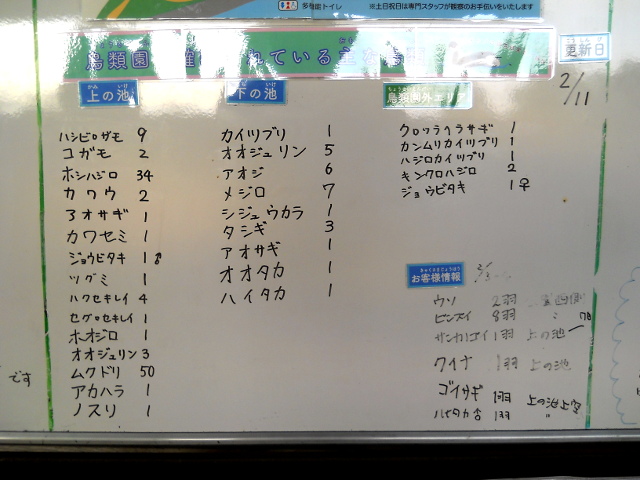 多機能トイレ
※土日祝日は専門スタッフが観察のお手伝いをいたします
鳥類園 れている主な鳥
更新日
2/11
上の池
ハシビロガモ 9
コガモ 2
ホシハジロ 34
カワウ 2
アオサギ 1
カワセミ 1
ジョウビタキ 1♂
ツグミ 1
ハクセキレイ 4
セグロセキレイ 1
ホオジロ 1
オオジュリン 3
ムクドリ 50
アカハラ 1
ノスリ 1
下の池
カイツブリ 1
オオジュリン 5
アオジ 6
メジロ 7
シジュウカラ 1
タシギ 3
アオサギ 1
オオタカ 1
ハイタカ 1
鳥類園外エリア
クロツラヘラサギ 1
カンムリカイツブリ 1
ハジロカイツブリ 1
キンクロハジロ 2
ジョウビタキ 1♀
お客様情報
ウソ 2羽 西側
ビンズイ 8羽 〃
サンカノゴイ 1羽 上の池
クイナ 1羽 上の池
ゴイサギ 1羽 上の池上空
ハイタカ 1羽 〃
です